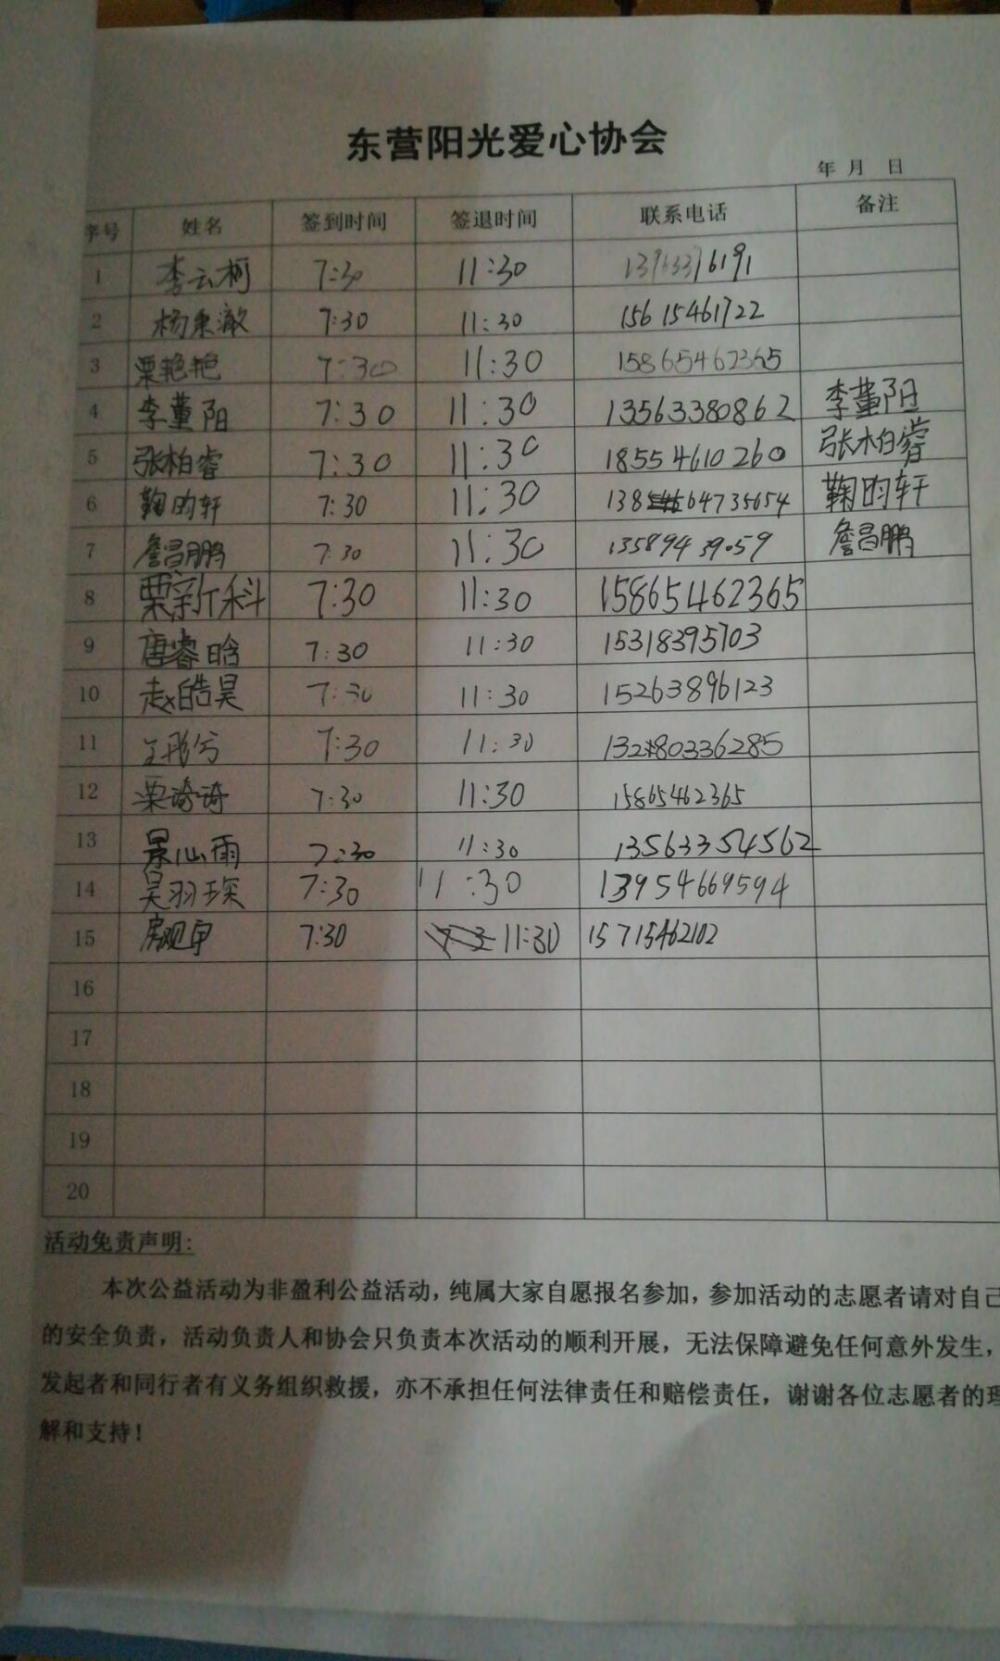 东营阳光爱心协会
年 月 日
序号 姓名 签到时间 签退时间 联系电话 备注
1 李云柯 7:30 11:30 13963376191
2 杨秉澈 7:30 11:30 15615461722
3 栗艳艳 7:30 11:30 15865462365
4 李董阳 7:30 11:30 13563380862 李董阳
5 张柏睿 7:30 11:30 18554610260 张柏睿
6 鞠昀轩 7:30 11:30 13864735654 鞠昀轩
7 詹昌鹏 7:30 11:30 13589439059 詹昌鹏
8 栗新科 7:30 11:30 15865462365
9 唐睿晗 7:30 11:30 15318395703
10 赵皓昊 7:30 11:30 15263896123
11 王彤兮 7:30 11:30 13280336285
12 栗琦琦 7:30 11:30 15865462365
13 景心雨 7:30 11:30 13563354562
14 吴羽琛 7:30 11:30 13954669594
15 7:30 11:30 15715462102
16
17
18
19
20
活动免责声明:
本次公益活动为非盈利公益活动，纯属大家自愿报名参加，参加活动的志愿者请对自己
的安全负责，活动负责人和协会只负责本次活动的顺利开展，无法保障避免任何意外发生，
发起者和同行者有义务组织救援，亦不承担任何法律责任和赔偿责任，谢谢各位志愿者的理
解和支持！